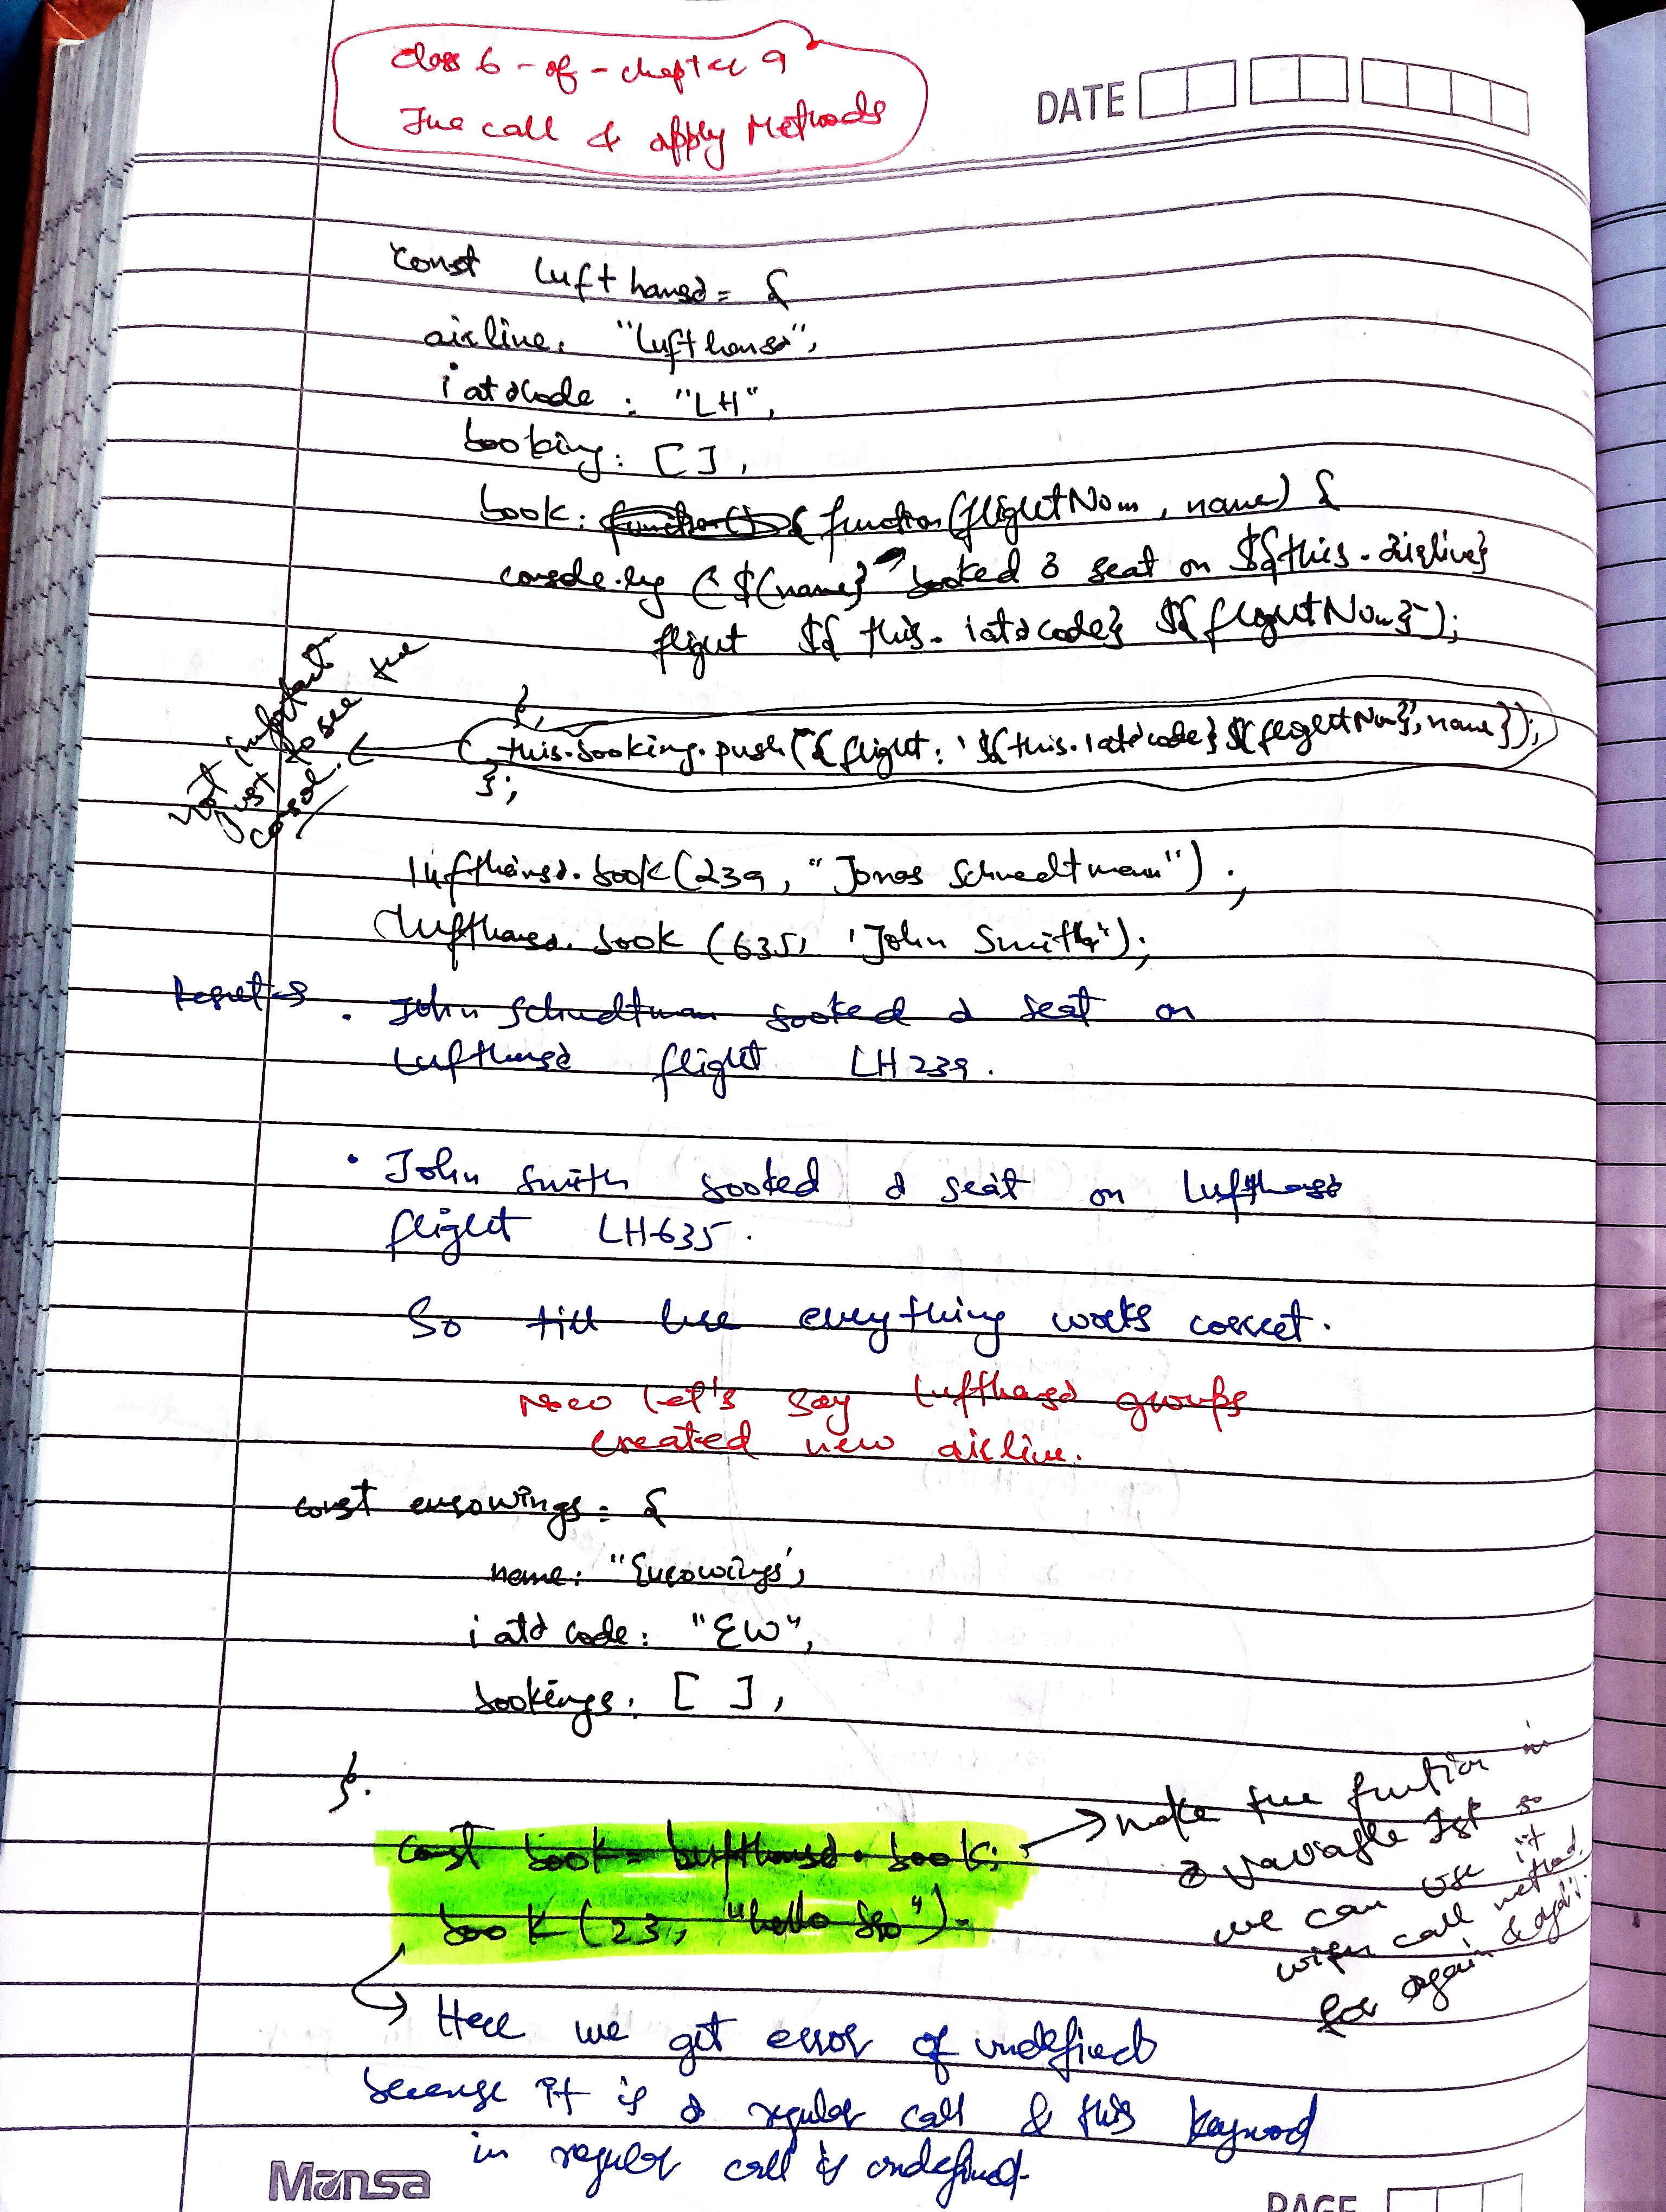 Class 6 - of - chapter 9
The call & apply Methods
DATE
const lufthansa = {
airline: "Lufthansa",
iatacode : "LH",
booking: [ ],
book: function() { function(flightNum, name) {
console.log (`${name} booked a seat on ${this.airline}
flight ${this.iatacode} ${flightNum}`);
},
this.booking.push({flight: '${this.iatacode} ${flightNum}', name});
};
not important
just to see the
consol.
lufthansa.book(239, "Jonas Schmedtmann");
lufthansa.book (635, 'John Smith");
Results
• John Schmedtman booked a seat on
Lufthansa flight LH239.
• John Smith booked a seat on Lufthansa
flight LH635.
So till here everything works correct.
Now let's say Lufthansa groups
created new airline.
const eurowings = {
name: "Eurowings',
iatacode: "EW",
bookings: [ ],
}.
const book = lufthansa.book;
book (23, "hello bro").
make the function in
a variable 1st so
we can use it
with call method
for again & again.
Here we get error of undefined
because it is a regular call & this keyword
in regular call is undefined.
Mansa
PAGE